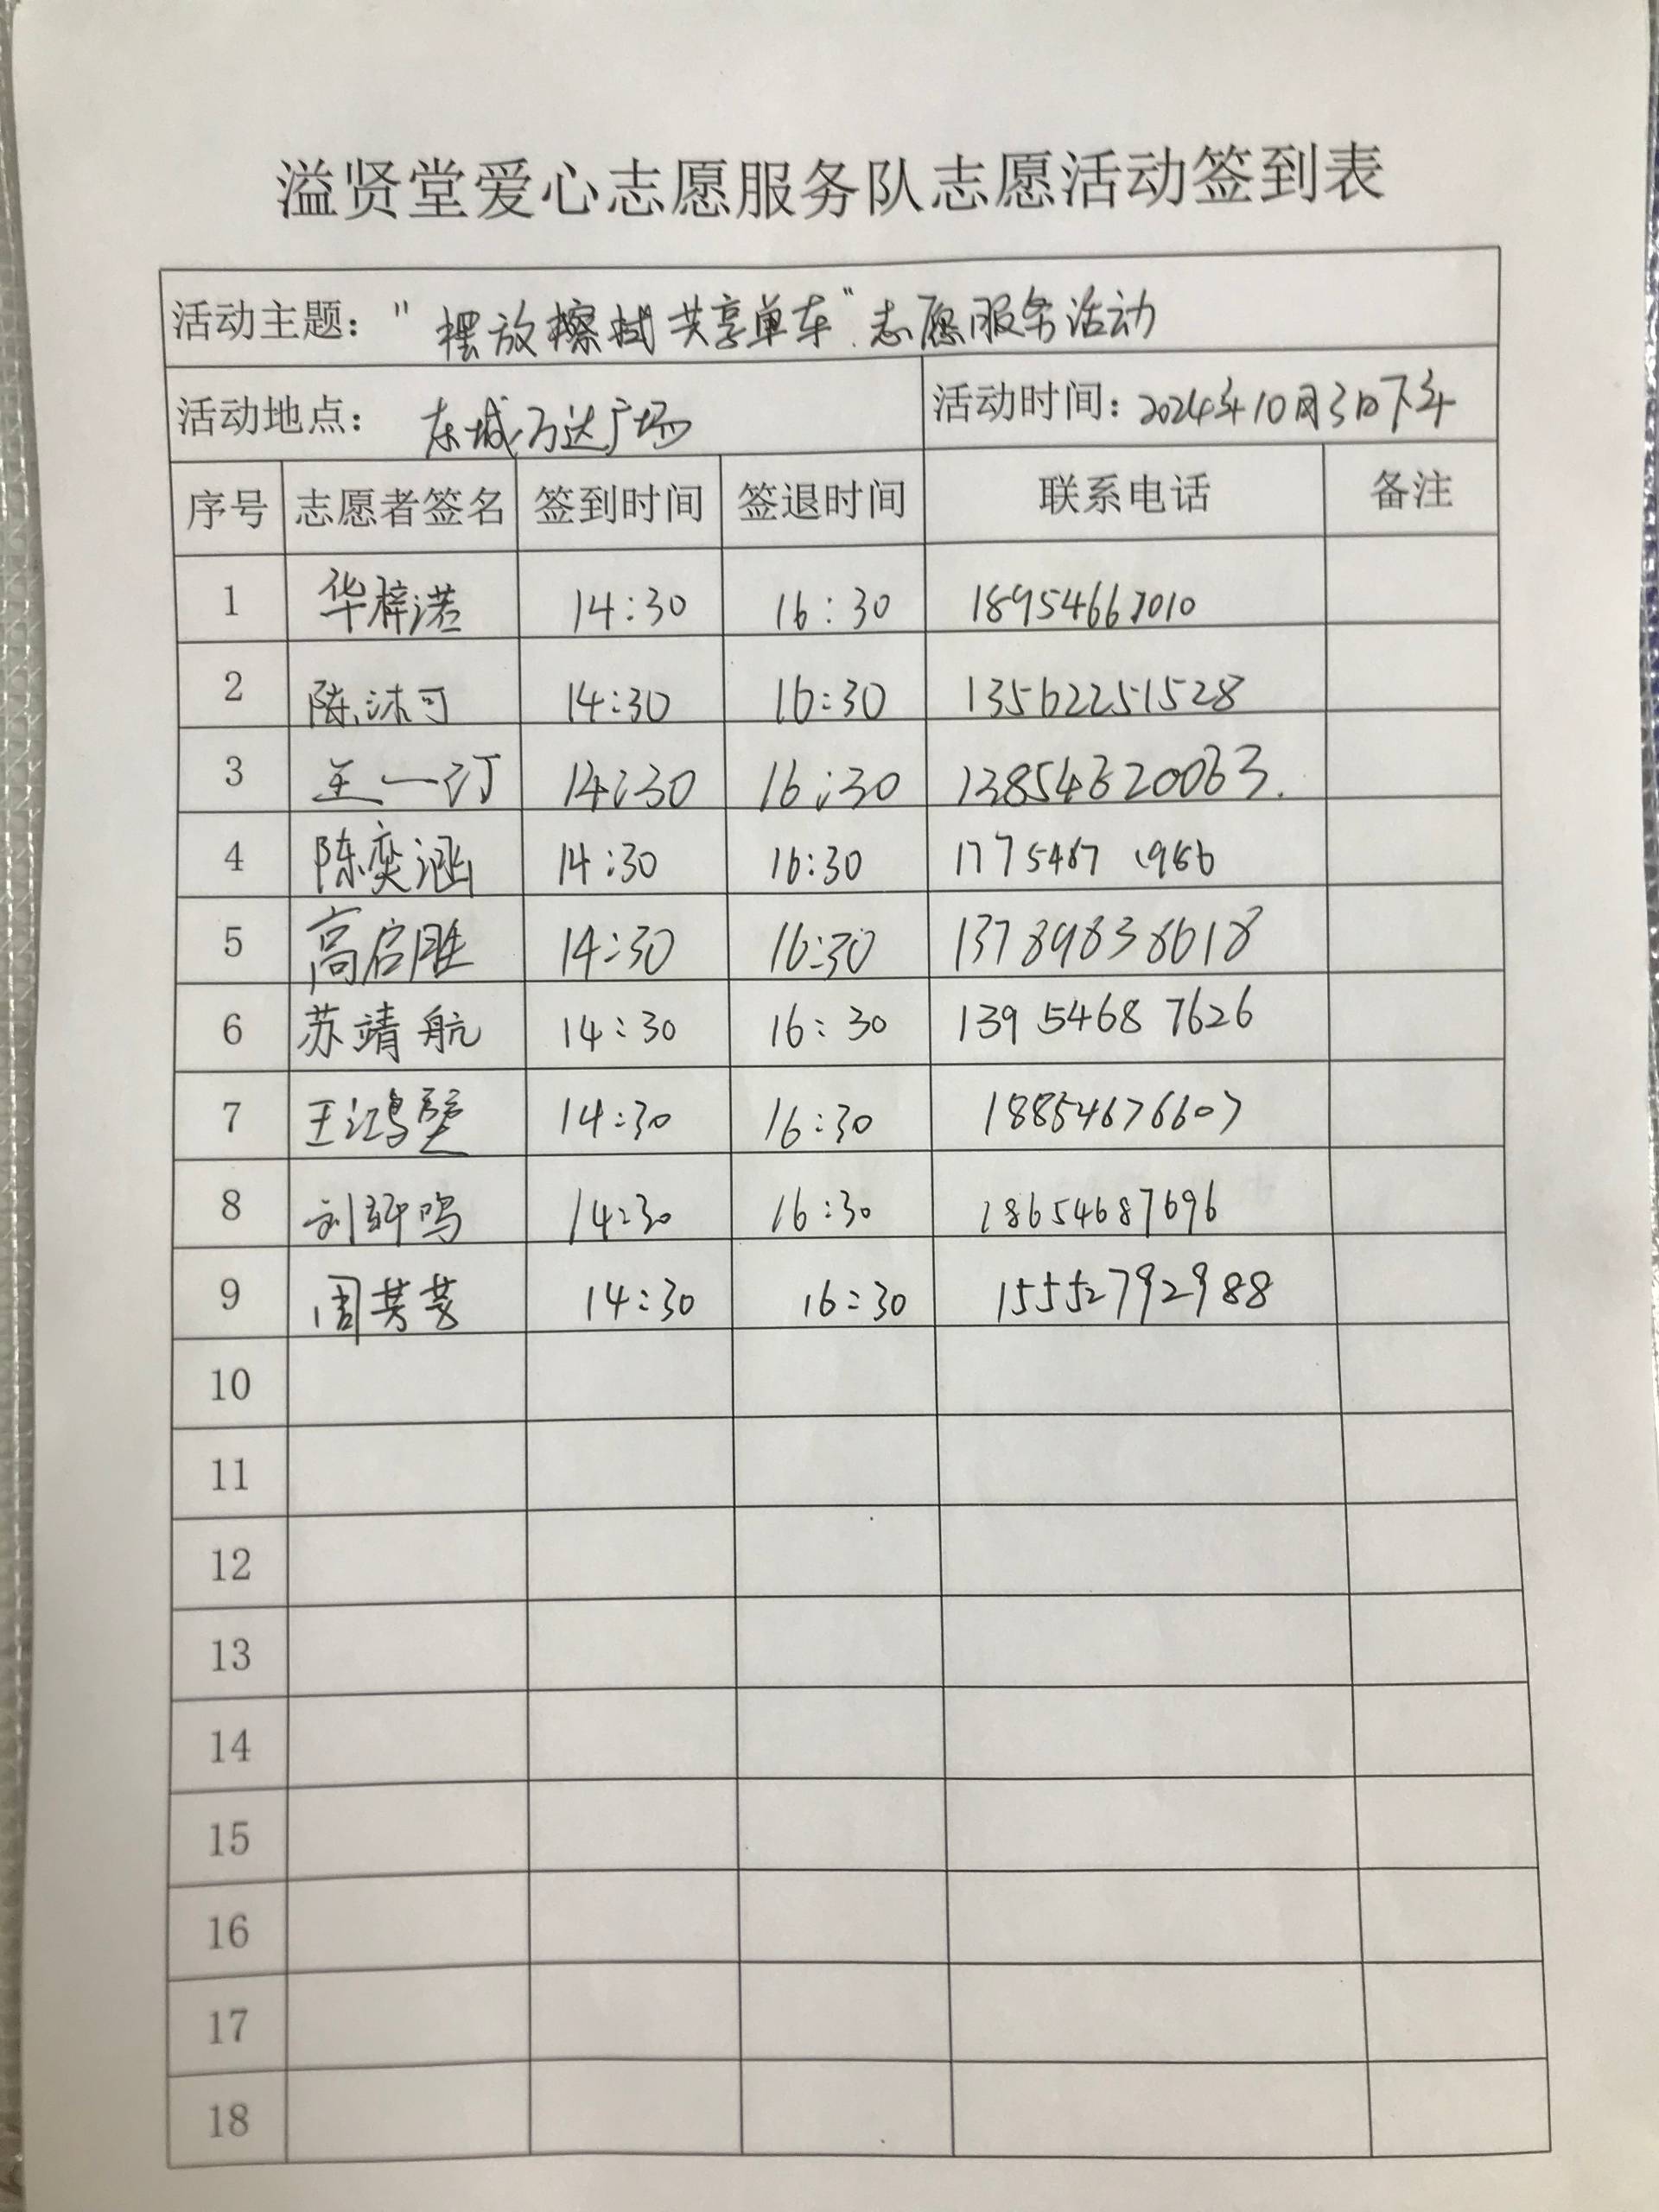 溢贤堂爱心志愿服务队志愿活动签到表
活动主题："摆放擦拭共享单车"志愿服务活动
活动地点：东城万达广场 活动时间：2024年10月3日下午
序号 志愿者签名 签到时间 签退时间 联系电话 备注
1 华梓诺 14:30 16:30 18954667010
2 陈沐可 14:30 16:30 13562251528
3 王一汀 14:30 16:30
4 陈奕涵 14:30 16:30
5 高启胜 14:30 16:30 13789838618
6 苏靖航 14:30 16:30 139 5468 7626
7 王鸿璧 14:30 16:30 18854676607
8 14:30 16:30 18654687696
9 14:30 16:30 15552792988
10
11
12
13
14
15
16
17
18